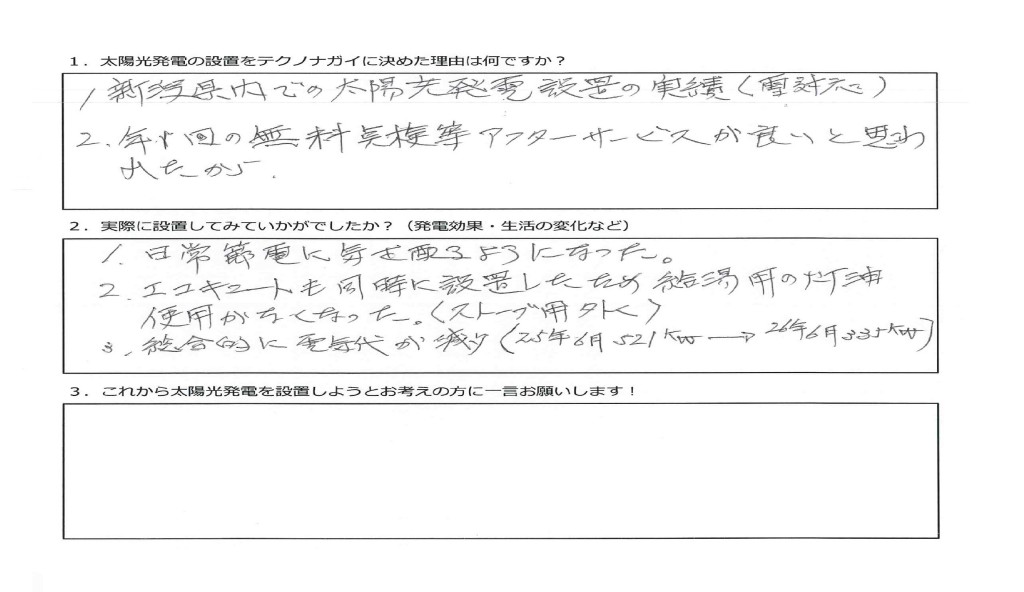 1. 太陽光発電の設置をテクノナガイに決めた理由は何ですか?
1 新潟県内での太陽光発電設置の実績(雪対応)
2. 年1回の無料点検等アフターサービスが良いと思わ
れたから.
2. 実際に設置してみていかがでしたか?(発電効果・生活の変化など)
1. 日常節電に気を配るようになった。
2. エコキュートも同時に設置したため給湯用の灯油
使用がなくなった。(ストーブ用外く)
3. 総合的に電気代が減少(25年6月521KW→26年6月335KW)
3. これから太陽光発電を設置しようとお考えの方に一言お願いします!